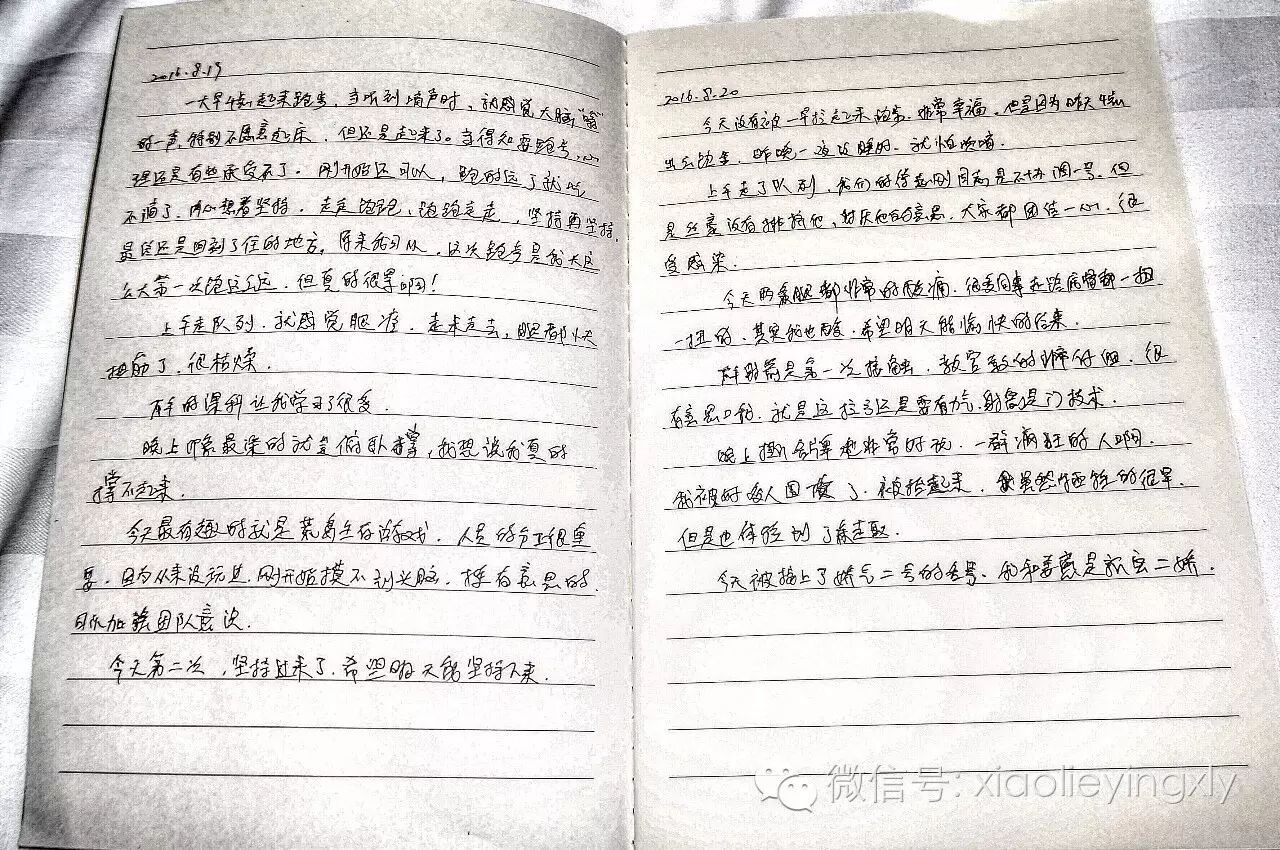 2016.8.19
一大早就起来跑步,当听到哨声时,就感觉大脑"嗡"
的一声,特别不愿意起床,但还是起来了。当得知要跑步,心
理还是有些承受不了。刚开始还可以,跑的远了就吃
不消了,内心想着坚持,走走跑跑,跑跑走走,坚持再坚持,
最后还是回到了住的地方,原来我可以,这次跑步是我长这
么大第一次跑这么远,但真的很累啊!
上午走队列,就感觉腿疼,走来走去,腿都快
抽筋了,很枯燥。
下午的课程让我学习了很多。
晚上印象最深的就是俯卧撑,我想说我真的
撑不起来。
今天最有趣的就是荒岛生存游戏,人员的分工很重
要,因为从来没玩过,刚开始摸不到头脑,挺有意思的,
加强团队意识。
今天第二次,坚持过来了,希望明天能坚持下来。
2016.8.20
今天没有被一早拉起来跑步,非常幸福。但是因为昨天
跑步,昨晚一夜没睡好,就怕吹哨。
上午走了队列,我们的 刚开始是不协调一号,但
是丝毫没有排挤他, 大家都团结一心,很
受感染。
今天两条腿都非常的酸痛,很多同事走路 都一扭
一扭的,其实我也酸,希望明天能愉快的起来。
下午射箭是第一次接触,教官教的非常仔细,很
有意思 就是这拉弓还是要有力气,射箭是门技术。
晚上撕名牌也非常好玩,一群疯狂的人啊。
我被好多人围攻了,被抬起来,我虽然牺牲的很早,
但是也体验到了
今天被撕上了娇气二号的名号,
微信号: xiaolieyingxly